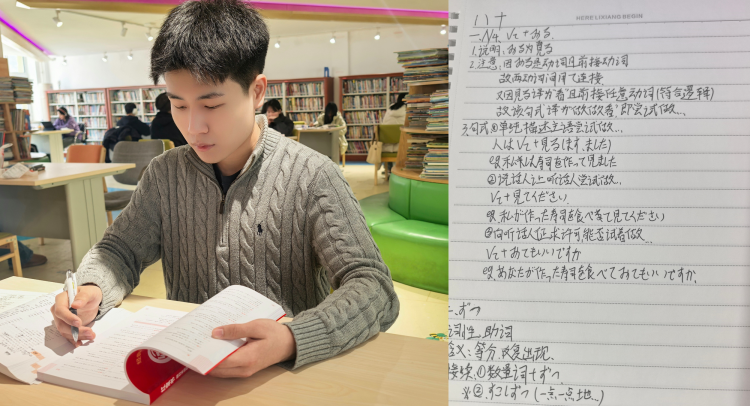 HERE LIXIANG BEGIN
八十
一.N4. Vて+みる.
1.说明:みる为見る
2.注意:因みる是动词且前接动词
故两动词间用て连接.
又因見る译为"看"且前接任意动词(符合逻辑)
故该句式译为"做做看"即尝试做...
3.句式①单纯描述主语尝试做...
人はVて+見る(ます.ました)
収私は寿司を作って見ました
②说话人让听话人尝试做..
Vて+見てください.
収私が作った寿司を食べて見てください
③向听话人征求许可能否试着做...
Vて+みてもいいですか
収あなたが作った寿司を食べてみてもいいですか.
二.ずつ
词性:助词
含义:等分.反复出现.
接续.①数量词+ずつ
※②.すこしずつ(一点一点地...)